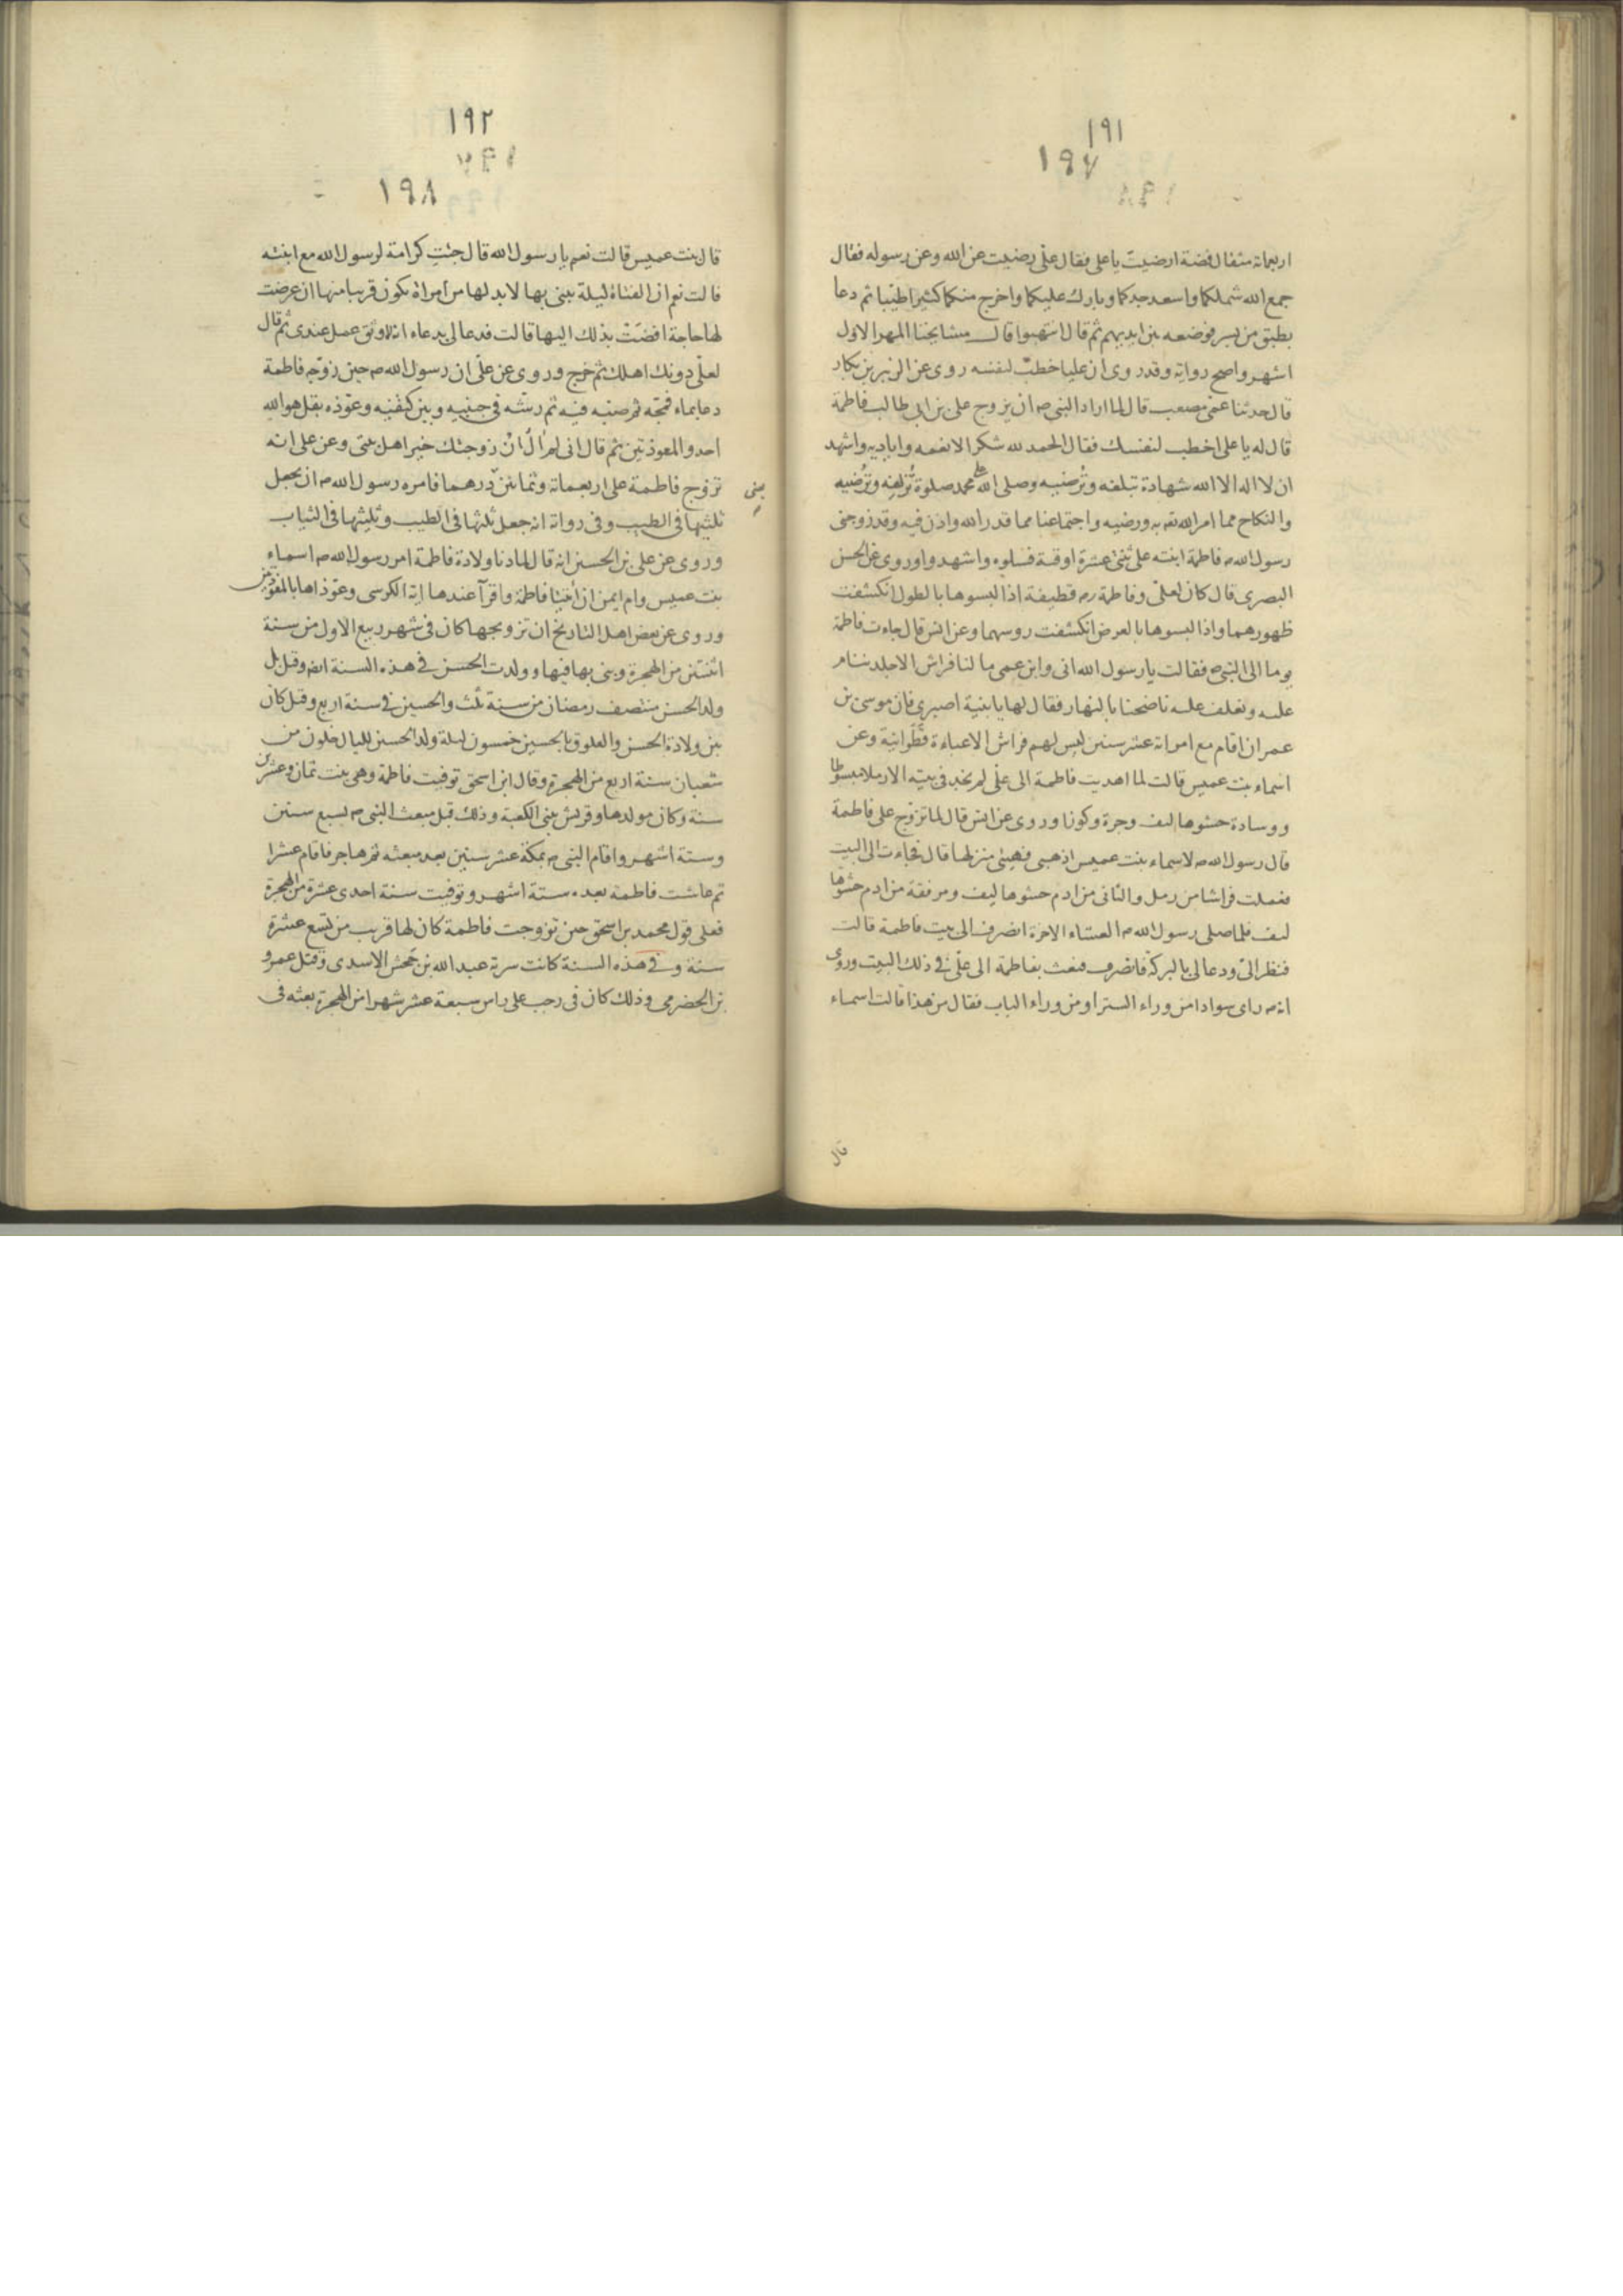 ١٩١
١٩٧
اربعمائة مثقال فضة ارضيت يا على فقال علىّ رضيت عن الله وعن رسوله فقال
جمع الله شملكما واسعد جدكما وبارك عليكما واخرج منكما كثيرا طيّبا ثم دعا
بطبق من بسر فوضعه بين ايديهم ثم قال انتهبوا قال مشايخنا المهر الاول
اشهر واصح رواية وقد روى ان عليا خطب لنفسه روى عن الزبير بن بكار
قال حدثنا عمى مصعب قال لما اراد النبى ص ان يزوج على بن ابى طالب فاطمة
قال له يا على اخطب لنفسك فقال الحمد لله شكرا لانعمه واياديه واشهد
ان لا اله الا الله شهادة تبلغه وتُرضيه وصلى الله على محمد صلوة تُزلفه وتُرضيه
والنكاح مما امر الله به ورضيه واجتماعنا مما قدر الله واذن فيه وقد زوجنى
رسول الله ص فاطمة ابنته على ثنتى عشرة اوقية فسلوه واشهدوا وروى عن الحسن
البصرى قال كان لعلىّ وفاطمة رض قطيفة اذا لبسوها بالطول انكشفت
ظهورهما واذا لبسوها بالعرض انكشفت روسهما وعن انس قال جاءت فاطمة
يوما الى النبى ص فقالت يا رسول الله انى وابن عمى ما لنا فراش الا جلد ننام
عليه ونعلف عليه ناضحنا بالنهار فقال لها يا بنية اصبرى فان موسى بن
عمران اقام مع امراته عشر سنين ليس لهم فراش الا عباءة قَطَوانية وعن
اسماء بنت عميس قالت لما اهديت فاطمة الى علىّ لم نجد فى بيته الا رملا مبسوطا
ووسادة حشوها ليف وجرة وكوزا وروى عن انس قال لما تزوج على فاطمة
قال رسول الله ص لاسماء بنت عميس اذهبى فهيئى منزلها قال فجاءت الى البيت
فعملت فراشا من رمل والثانى من ادم حشوها ليف ومرفقة من ادم حشوها
ليف فلما صلى رسول الله ص العشاء الاخرة انصرف الى بيت فاطمة قالت
فنظر الىّ ودعا لى بالبركة فانصرف فبعث بفاطمة الى علىّ فى ذلك البيت وروى
انه ص راى سوادا من وراء الستر او من وراء الباب فقال من هذا قالت اسماء
قال
١٩٢
١٩٨
قال بنت عميس قالت نعم يا رسول الله قال جئتِ كرامة لرسول الله مع ابنته
قالت نعم ان الفتاة ليلة يبنى بها لا بد لها من امراة تكون قريبا منها ان عرضت
لها حاجة افضَتْ بذلك اليها قالت فدعا لى بدعاء انه لاوثق عمل عندى ثم قال
لعلىّ دونك اهلك ثم خرج وروى عن علىّ ان رسول الله ص حين زوّجه فاطمة
دعا بماء فمجّه ثم صبّه فيه ثم رشّه فى جنبيه وبين كتفيه وعوّذه بقل هو الله
احد والمعوذتين ثم قال انى لم اٰلُ ان زوجتك خير اهل بيتى وعن على انه
تزوج فاطمة على اربعمائة وثمانين درهما فامره رسول الله ص ان يجعل
ثلثيها فى الطيب وفى رواية انه جعل ثلثها فى الطيب وثلثيها فى الثياب
وروى عن على بن الحسين انه قال لما دنا ولادة فاطمة امر رسول الله ص اسماء
بنت عميس وام ايمن ان ائتيا فاطمة واقرآ عندها اية الكرسى وعوّذاها بالمعوذتين
وروى عن بعض اهل التاريخ ان تزويجها كان فى شهر ربيع الاول من سنة
اثنتين من الهجرة وبنى بها فيها وولدت الحسن فى هذه السنة ايضا وقيل بل
ولد الحسن منتصف رمضان من سنة ثلث والحسين فى سنة اربع وقيل كان
بين ولادة الحسن والعلوق بالحسين خمسون ليلة ولد الحسين لليال خلون من
شعبان سنة اربع من الهجرة وقال ابن اسحق توفيت فاطمة وهى بنت ثمان وعشرين
سنة وكان مولدها وقريش يبنى الكعبة وذلك قبل مبعث النبى ص بسبع سنين
وستة اشهر واقام النبى ص بمكة عشر سنين بعد مبعثه ثم هاجر فاقام عشرا
ثم عاشت فاطمة بعده ستة اشهر وتوفيت سنة احدى عشرة من الهجرة
فعلى قول محمد بن اسحق حين تزوجت فاطمة كان لها قريب من تسع عشرة
سنة وفى هذه السنة كانت سرية عبد الله بن جحش الاسدى وقتل عمرو
بن الحضرمى وذلك كان فى رجب على راس سبعة عشر شهرا من الهجرة بعثه فى